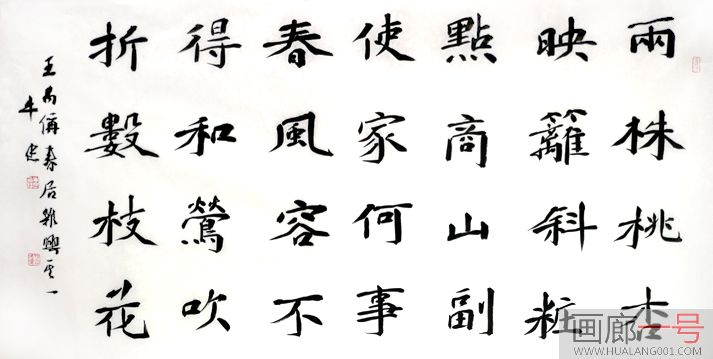 兩株桃杏
映籬斜粧
點商山副
使家何事
春風容不
得和鶯吹
折數枝花
王禹偁春居雜興其一
牛
画廊一号
WWW.HUALANG001.COM